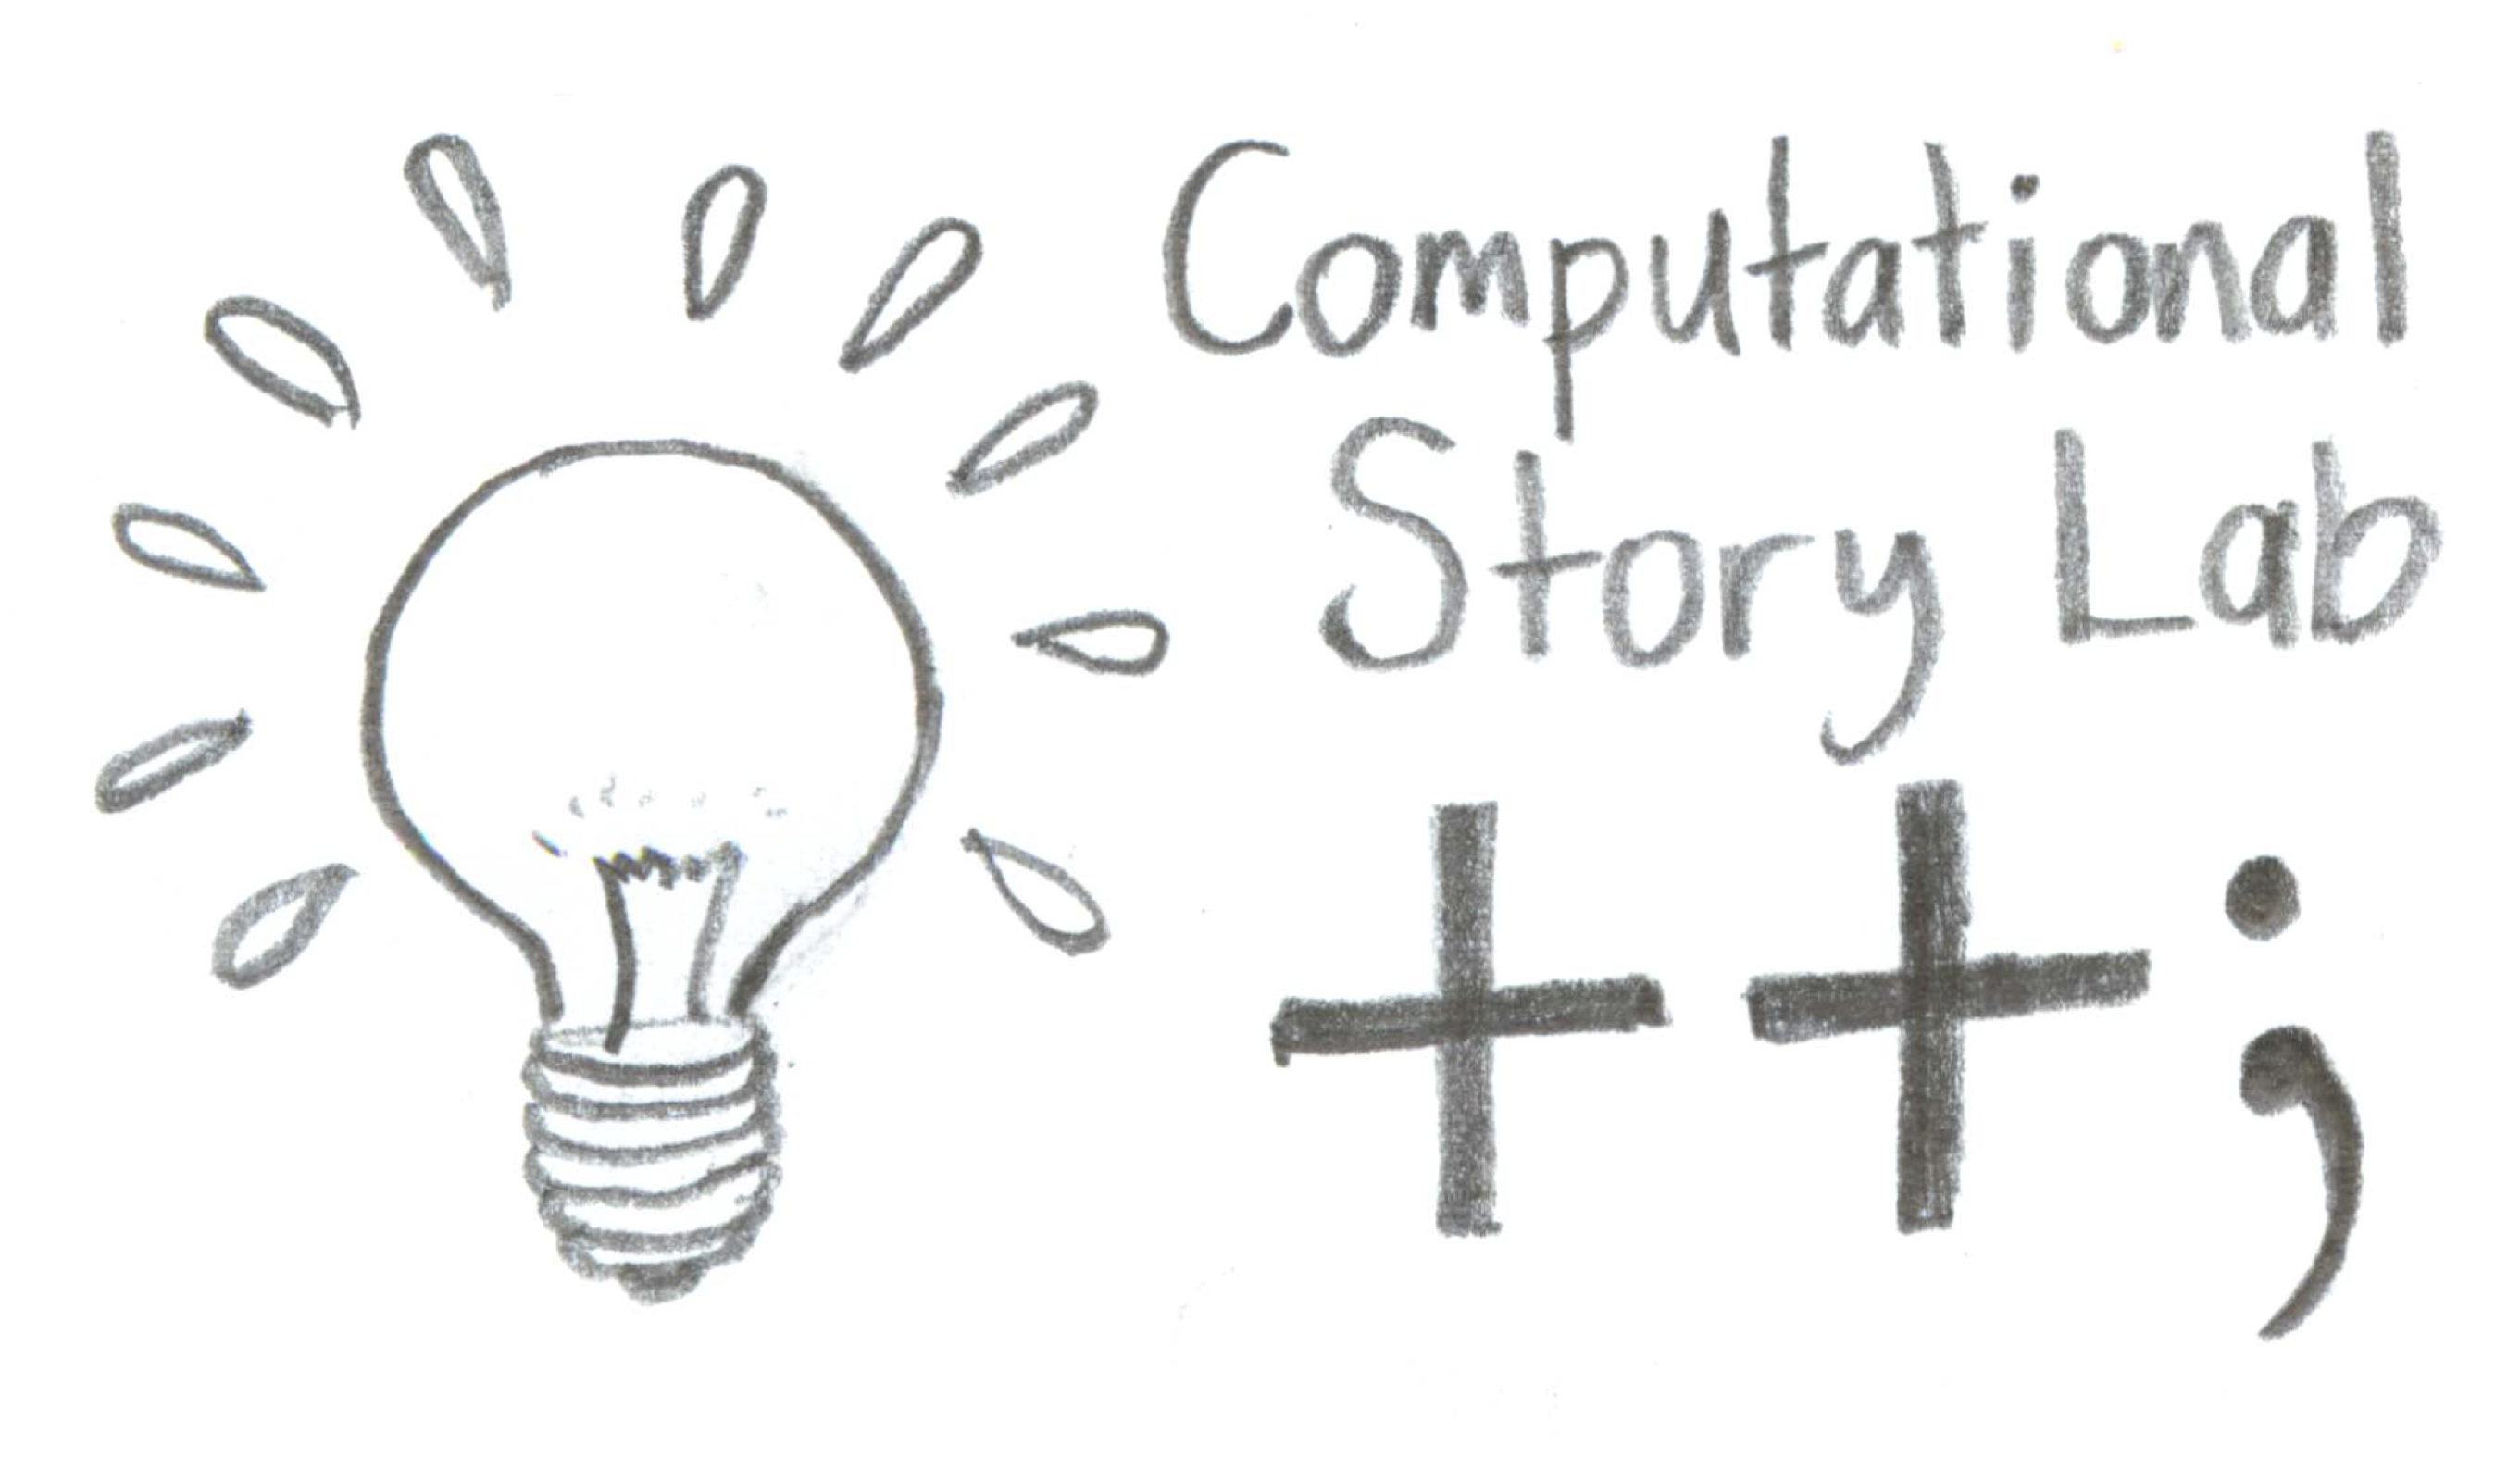 Computational
Story Lab
++;